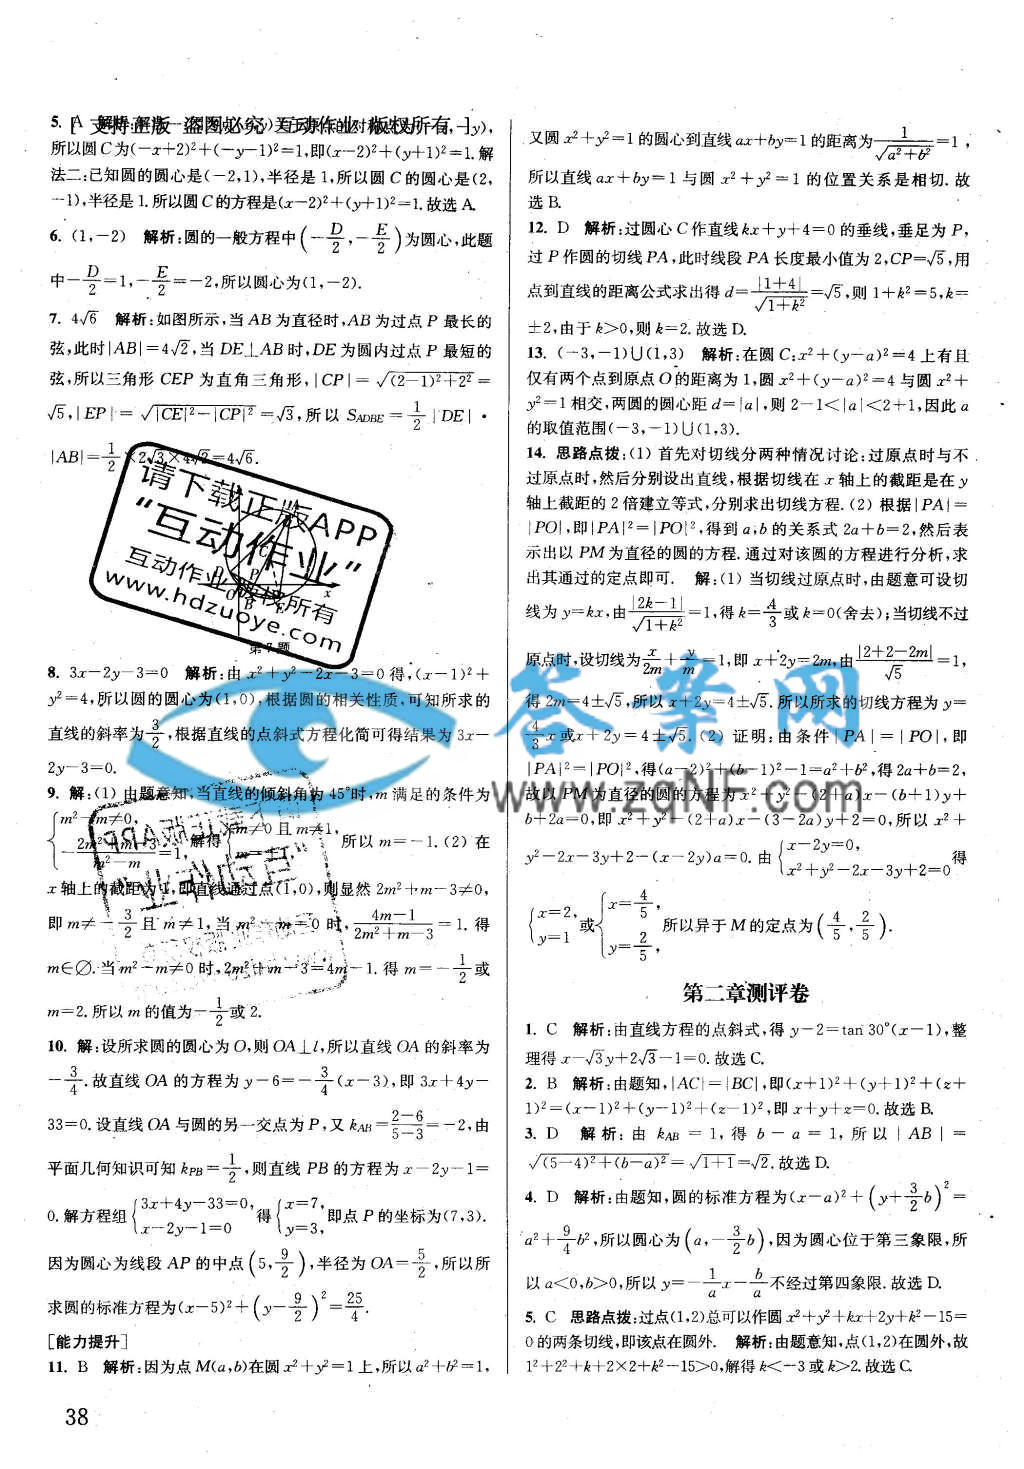 5. A 解析:
[ 支持正版 盗图必究 互动作业 版权所有 ]
所以圆C为(-x+2)²+(-y-1)²=1,即(x-2)²+(y+1)²=1.解
法二:已知圆的圆心是(-2,1),半径是1,所以圆C的圆心是(2,
-1),半径是1.所以圆C的方程是(x-2)²+(y+1)²=1.故选A.
6. (1,-2) 解析:圆的一般方程中(-D/2,-E/2)为圆心,此题
中-D/2=1,-E/2=-2,所以圆心为(1,-2).
7. 4√6 解析:如图所示,当AB为直径时,AB为过点P最长的
弦,此时|AB|=4√2,当DE⊥AB时,DE为圆内过点P最短的
弦,所以三角形CEP为直角三角形,|CP|=√((2-1)²+2²)=
√5,|EP|=√(|CE|²-|CP|²)=√3,所以S_ADBE=1/2|DE|·
|AB|=1/2×2√3×4√2=4√6.
请下载正版APP
“互动作业”
互动作业 版权所有
www.hdzuoye.com
第7题
8. 3x-2y-3=0 解析:由x²+y²-2x-3=0得,(x-1)²+
y²=4,所以圆的圆心为(1,0),根据圆的相关性质,可知所求的
直线的斜率为3/2,根据直线的点斜式方程化简可得结果为3x-
2y-3=0.
9. 解:(1) 由题意知,当直线的倾斜角为45°时,m满足的条件为
{m²-m≠0, -(2m²+m-3)/(m²-m)=1, 解得{m≠0且m≠1, 所以m=-1.(2) 在
x轴上的截距为1,即直线通过点(1,0),则显然2m²+m-3≠0,
即m≠-3/2且m≠1,当m²-m=0时,(4m-1)/(2m²+m-3)=1.得
m∈∅.当m²-m≠0时,2m²+m-3=4m-1.得m=-1/2或
m=2.所以m的值为-1/2或2.
10. 解:设所求圆的圆心为O,则OA⊥l,所以直线OA的斜率为
-3/4.故直线OA的方程为y-6=-3/4(x-3),即3x+4y-
33=0.设直线OA与圆的另一交点为P,又k_AB=(2-6)/(5-3)=-2,由
平面几何知识可知k_PB=1/2,则直线PB的方程为x-2y-1=
0.解方程组{3x+4y-33=0, x-2y-1=0 得{x=7, y=3, 即点P的坐标为(7,3).
因为圆心为线段AP的中点(5,9/2),半径为OA=5/2,所以所
求圆的标准方程为(x-5)²+(y-9/2)²=25/4.
[能力提升]
11. B 解析:因为点M(a,b)在圆x²+y²=1上,所以a²+b²=1,
38
又圆x²+y²=1的圆心到直线ax+by=1的距离为1/√(a²+b²)=1,
所以直线ax+by=1与圆x²+y²=1的位置关系是相切.故
选B.
12. D 解析:过圆心C作直线kx+y+4=0的垂线,垂足为P,
过P作圆的切线PA,此时线段PA长度最小值为2,CP=√5,用
点到直线的距离公式求出得d=|1+4|/√(1+k²)=√5,则1+k²=5,k=
±2,由于k>0,则k=2.故选D.
13. (-3,-1)∪(1,3) 解析:在圆C:x²+(y-a)²=4上有且
仅有两个点到原点O的距离为1,圆x²+(y-a)²=4与圆x²+
y²=1相交,两圆的圆心距d=|a|,则2-1<|a|<2+1,因此a
的取值范围(-3,-1)∪(1,3).
14. 思路点拨:(1) 首先对切线分两种情况讨论:过原点时与不
过原点时,然后分别设出直线,根据切线在x轴上的截距是在y
轴上截距的2倍建立等式,分别求出切线方程.(2) 根据|PA|=
|PO|,即|PA|²=|PO|²,得到a,b的关系式2a+b=2,然后表
示出以PM为直径的圆的方程.通过对该圆的方程进行分析,求
出其通过的定点即可. 解:(1) 当切线过原点时,由题意可设切
线为y=kx,由|2k-1|/√(1+k²)=1,得k=4/3或k=0(舍去);当切线不过
原点时,设切线为x/2m+y/m=1,即x+2y=2m,由|2+2-2m|/√5=1,
得2m=4±√5,所以x+2y=4±√5.所以所求的切线方程为y=
4/3x或x+2y=4±√5.(2) 证明:由条件|PA|=|PO|,即
|PA|²=|PO|²,得(a-2)²+(b-1)²-1=a²+b²,得2a+b=2.
故以PM为直径的圆的方程为x²+y²-(2+a)x-(b+1)y+
b+2a=0,即x²+y²-(2+a)x-(3-2a)y+2=0,所以x²+
y²-2x-3y+2-(x-2y)a=0.由{x-2y=0, x²+y²-2x-3y+2=0 得
{x=2, y=1 或{x=4/5, y=2/5, 所以异于M的定点为(4/5,2/5).
答案网
www.zqNF.com
第二章测评卷
1. C 解析:由直线方程的点斜式,得y-2=tan 30°(x-1),整
理得x-√3y+2√3-1=0.故选C.
2. B 解析:由题知,|AC|=|BC|,即(x+1)²+(y+1)²+(z+
1)²=(x-1)²+(y-1)²+(z-1)²,即x+y+z=0.故选B.
3. D 解析:由k_AB=1,得b-a=1,所以|AB|=
√((5-4)²+(b-a)²)=√(1+1)=√2.故选D.
4. D 解析:由题知,圆的标准方程为(x-a)²+(y+3/2b)²=
a²+9/4b²,所以圆心为(a,-3/2b),因为圆心位于第三象限,所
以a<0,b>0,所以y=-1/a x-b/a不经过第四象限.故选D.
5. C 思路点拨:过点(1,2)总可以作圆x²+y²+kx+2y+k²-15=
0的两条切线,即该点在圆外. 解析:由题意知,点(1,2)在圆外,故
1²+2²+k+2×2+k²-15>0,解得k<-3或k>2.故选C.